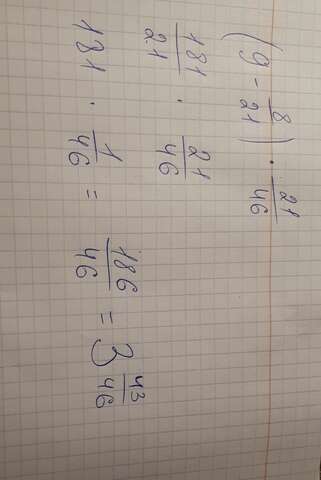 (9 - 8/21) · 21/46
181/21 · 21/46
181 · 1/46 = 186/46 = 3 43/46